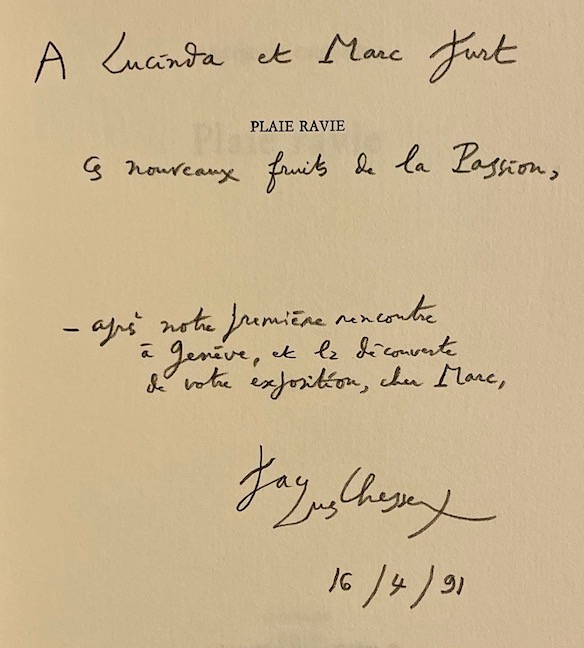 A Lucinda et Marc Jurt
PLAIE RAVIE
Plaie Ravie
Cs nouveaux fruits de la Passion,
– aprs notre première rencontre
à Genève, et la découverte
de votre exposition, cher Marc,
Jacques Chessex
16/4/91